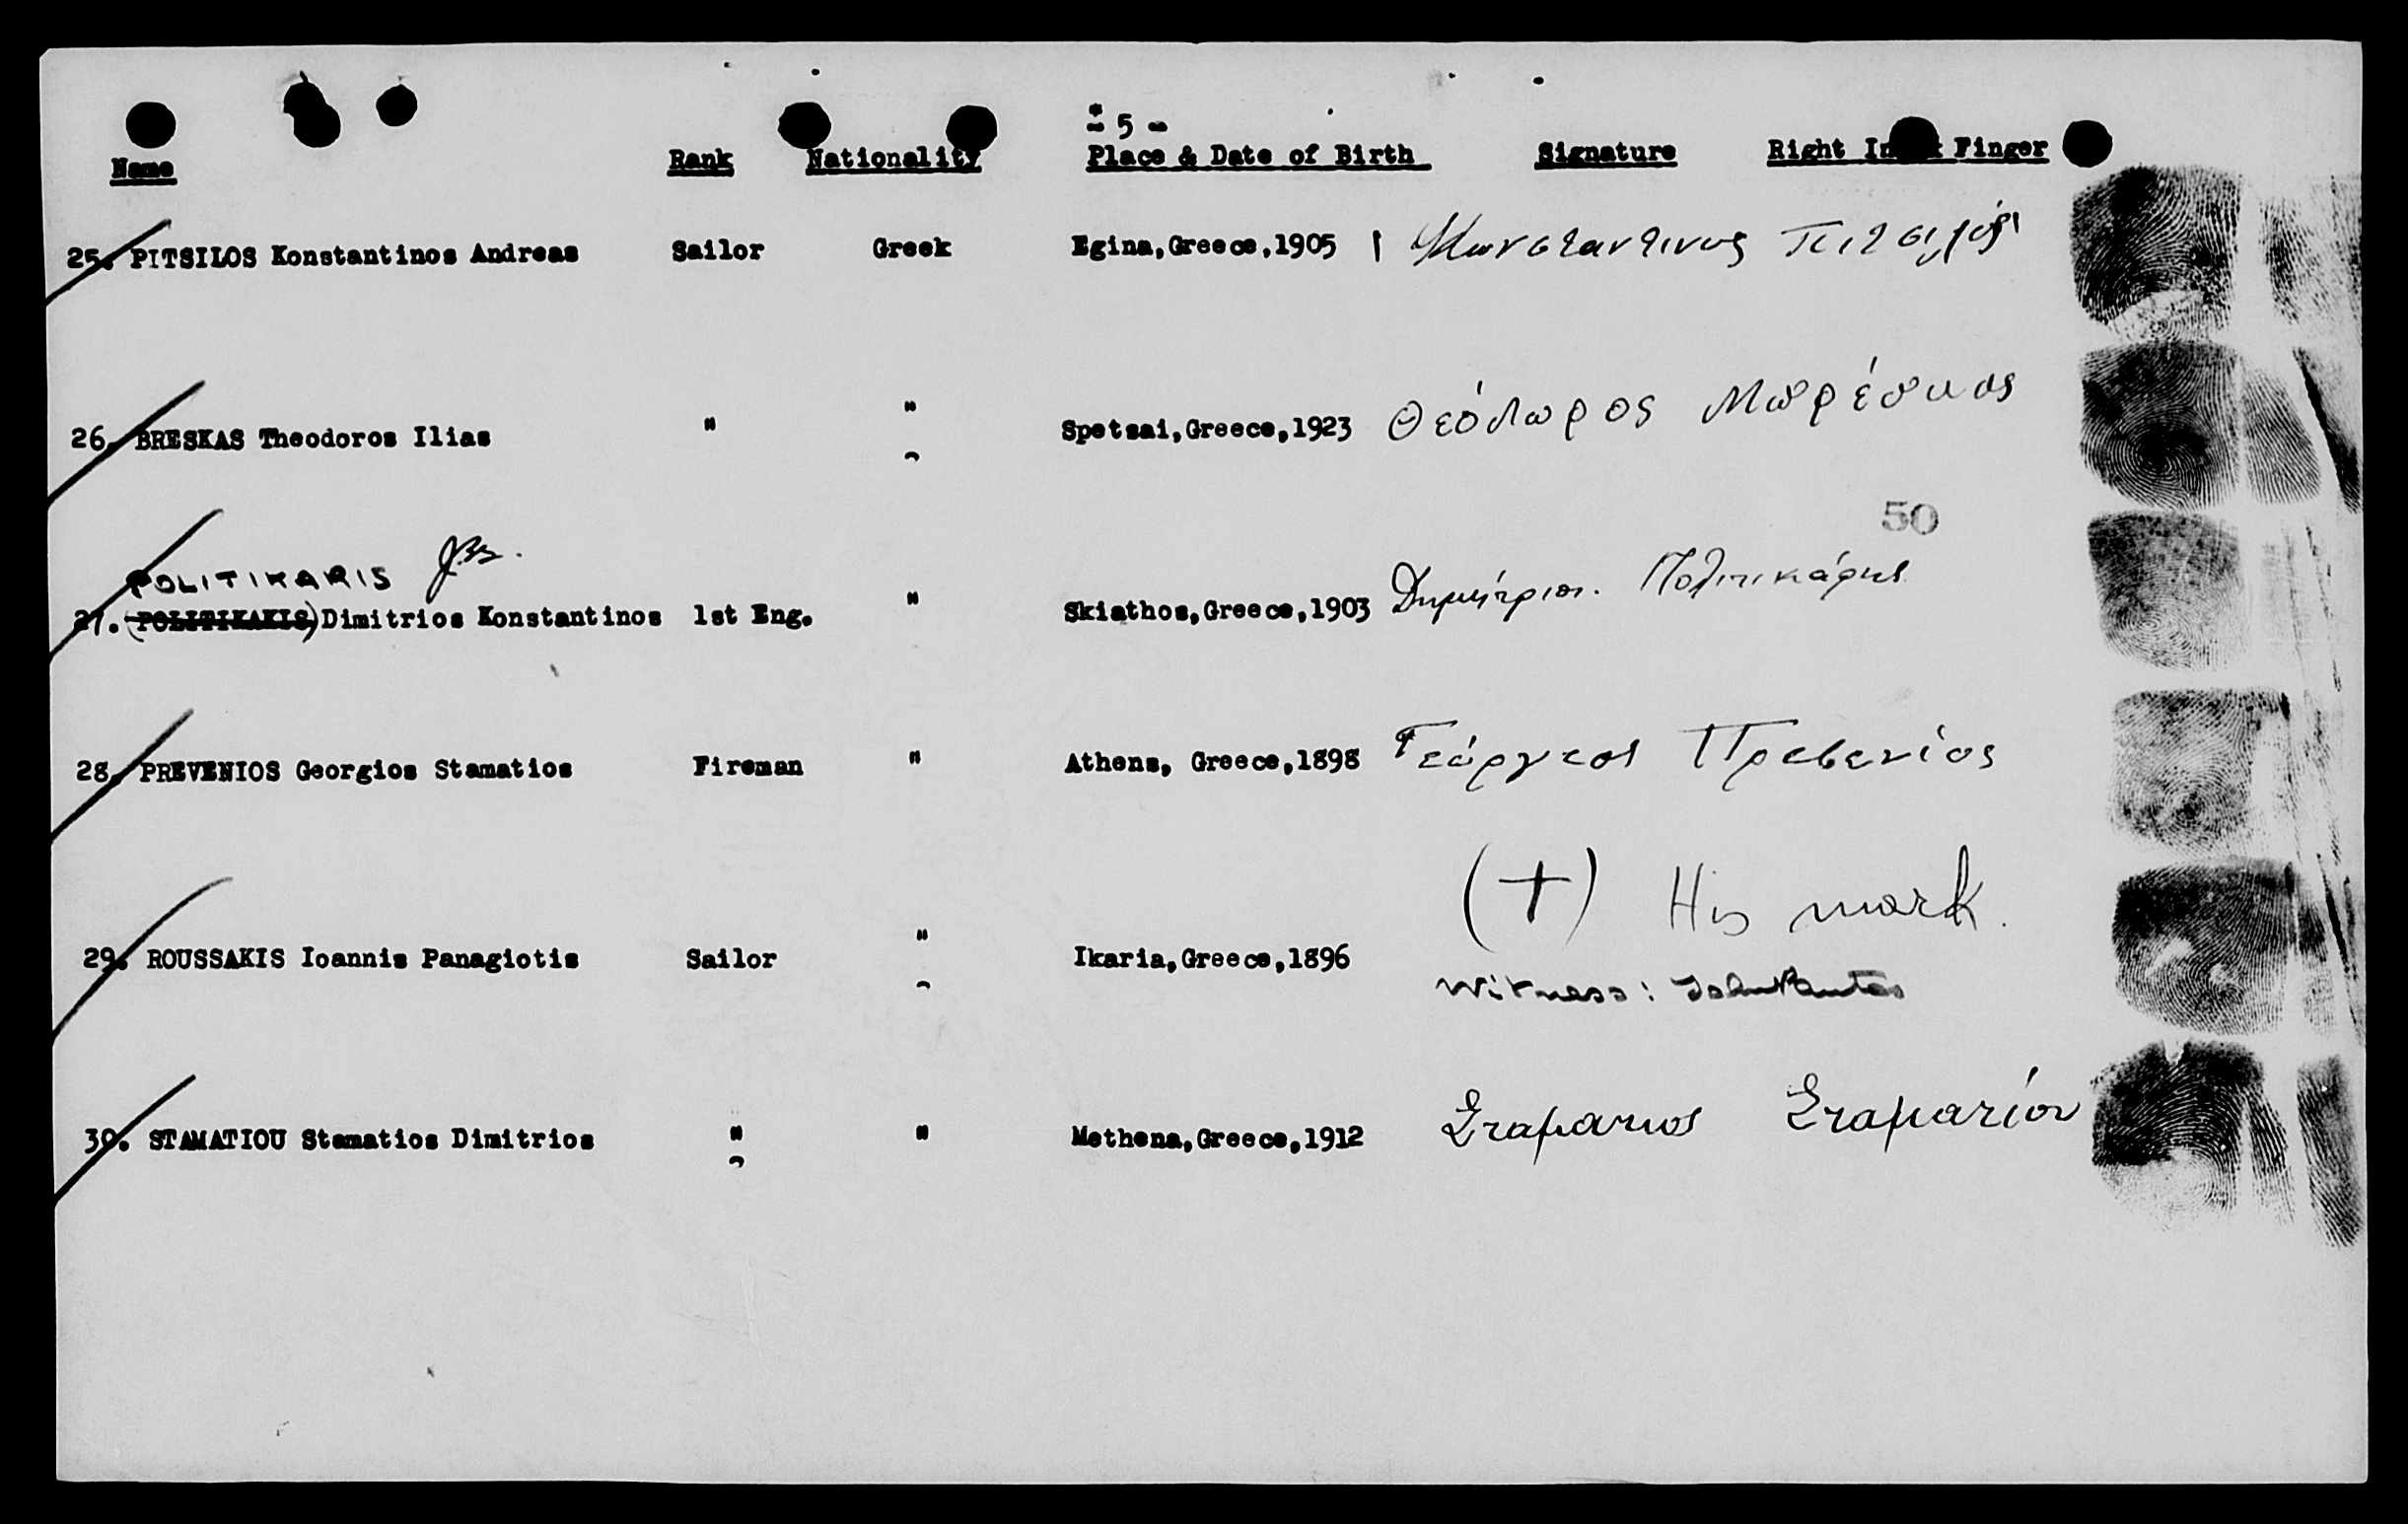 - 5 -
Name Rank Nationality Place & Date of Birth Signature Right Index Finger
25. PITSILOS Konstantinos Andreas Sailor Greek Egina,Greece,1905 Κωνσταντινος Πιτσιλός
26. BRESKAS Theodoros Ilias " " Spetsai,Greece,1923 Θεόδωρος Μπρέσκας
50
POLITIKARIS
27. (POLITIKAKIS) Dimitrios Konstantinos 1st Eng. " Skiathos,Greece,1903 Δημήτριος. Πολιτικάρης
28. PREVENIOS Georgios Stamatios Fireman " Athens, Greece,1898 Γεόργιος Πρεβενίος
(+) His mark.
29. ROUSSAKIS Ioannis Panagiotis Sailor " Ikaria,Greece,1896
Witness: John
30. STAMATIOU Stamatios Dimitrios " " Methena,Greece,1912 Σταματιος Σταματίου